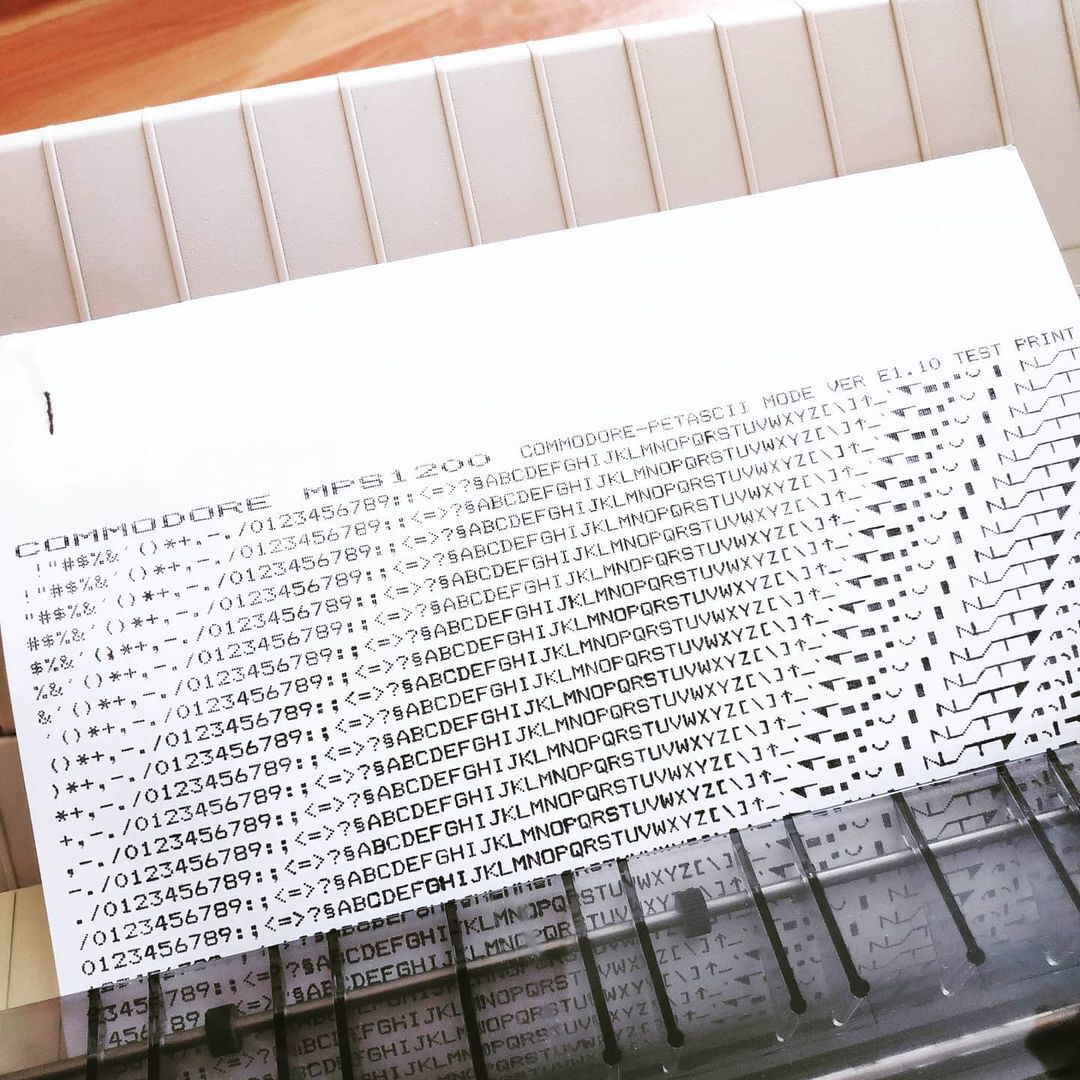 COMMODORE MPS1200 COMMODORE-PETASCII MODE VER E1.10 TEST PRINT
!"#$%&´()*+,-./0123456789:;<=>?§ABCDEFGHIJKLMNOPQRSTUVWXYZ[\]↑_
!"#$%&´()*+,-./0123456789:;<=>?§ABCDEFGHIJKLMNOPQRSTUVWXYZ[\]↑_
"#$%&´()*+,-./0123456789:;<=>?§ABCDEFGHIJKLMNOPQRSTUVWXYZ[\]↑_
#$%&´()*+,-./0123456789:;<=>?§ABCDEFGHIJKLMNOPQRSTUVWXYZ[\]↑_
$%&´()*+,-./0123456789:;<=>?§ABCDEFGHIJKLMNOPQRSTUVWXYZ[\]↑_
%&´()*+,-./0123456789:;<=>?§ABCDEFGHIJKLMNOPQRSTUVWXYZ[\]↑_
&´()*+,-./0123456789:;<=>?§ABCDEFGHIJKLMNOPQRSTUVWXYZ[\]↑_
´()*+,-./0123456789:;<=>?§ABCDEFGHIJKLMNOPQRSTUVWXYZ[\]↑_
()*+,-./0123456789:;<=>?§ABCDEFGHIJKLMNOPQRSTUVWXYZ[\]↑_
)*+,-./0123456789:;<=>?§ABCDEFGHIJKLMNOPQRSTUVWXYZ[\]↑_
*+,-./0123456789:;<=>?§ABCDEFGHIJKLMNOPQRSTUVWXYZ[\]↑_
+,-./0123456789:;<=>?§ABCDEFGHIJKLMNOPQRSTUVWXYZ[\]↑_
,-./0123456789:;<=>?§ABCDEFGHIJKLMNOPQRSTUVWXYZ[\]↑_
-./0123456789:;<=>?§ABCDEFGHIJKLMNOPQRSTUVWXYZ[\]↑_
./0123456789:;<=>?§ABCDEFGHIJKLMNOPQRSTUVWXYZ[\]↑_
/0123456789:;<=>?§ABCDEFGHIJKLMNOPQRSTUVWXYZ[\]↑_
0123456789:;<=>?§ABCDEFGHIJKLMNOPQRSTUVWXYZ[\]↑_